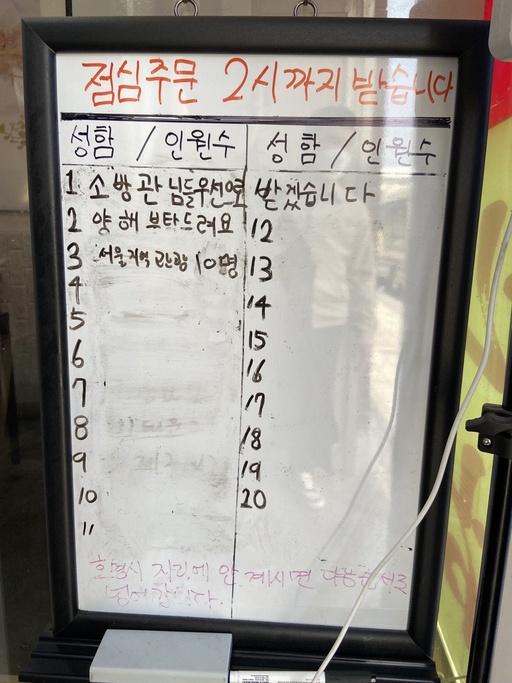 점심주문 2시까지 받습니다
성함 / 인원수 성함 / 인원수
1 소방관님들우선으로 받겠습니다
2 양해부탁드려요 12
3 서울지역 관광 10명 13
4 14
5 15
6 16
7 17
8 18
9 19
10 20
11
호명시 자리에 안 계시면 다음순서로
넘어갑니다.